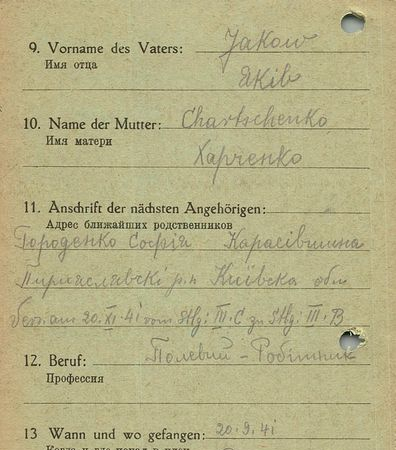 9. Vorname des Vaters: Jakow
Имя отца Якiв
10. Name der Mutter: Chartschenko
Имя матери Харченко
11. Anschrift der nächsten Angehörigen:
Адрес ближайших родственников
Городенко Софiя Карасiвщина
р-н Київска обл
Vers. am 20.XI.41 vom Stlg: III.C zu Stlg: III.B
12. Beruf: Полевий - Робiтник
Профессия
13 Wann und wo gefangen: 20.9.41